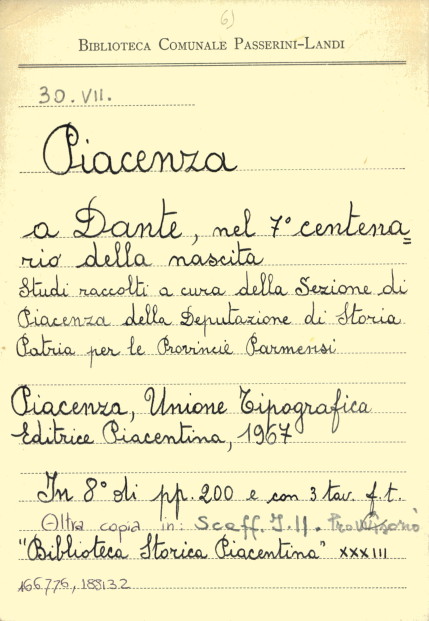 6)
BIBLIOTECA COMUNALE PASSERINI-LANDI
30. VII.
Piacenza
a Dante, nel 7° centena=
rio della nascita
Studi raccolti a cura della Sezione di
Piacenza della Deputazione di Storia
Patria per le Provincie Parmensi
Piacenza, Unione Tipografica
Editrice Piacentina, 1967
In 8° di pp. 200 e con 3 tav. f.t.
Altra copia in: Scaff. I.11. Provvisorio
"Biblioteca Storica Piacentina" XXXIII
166776, 188132